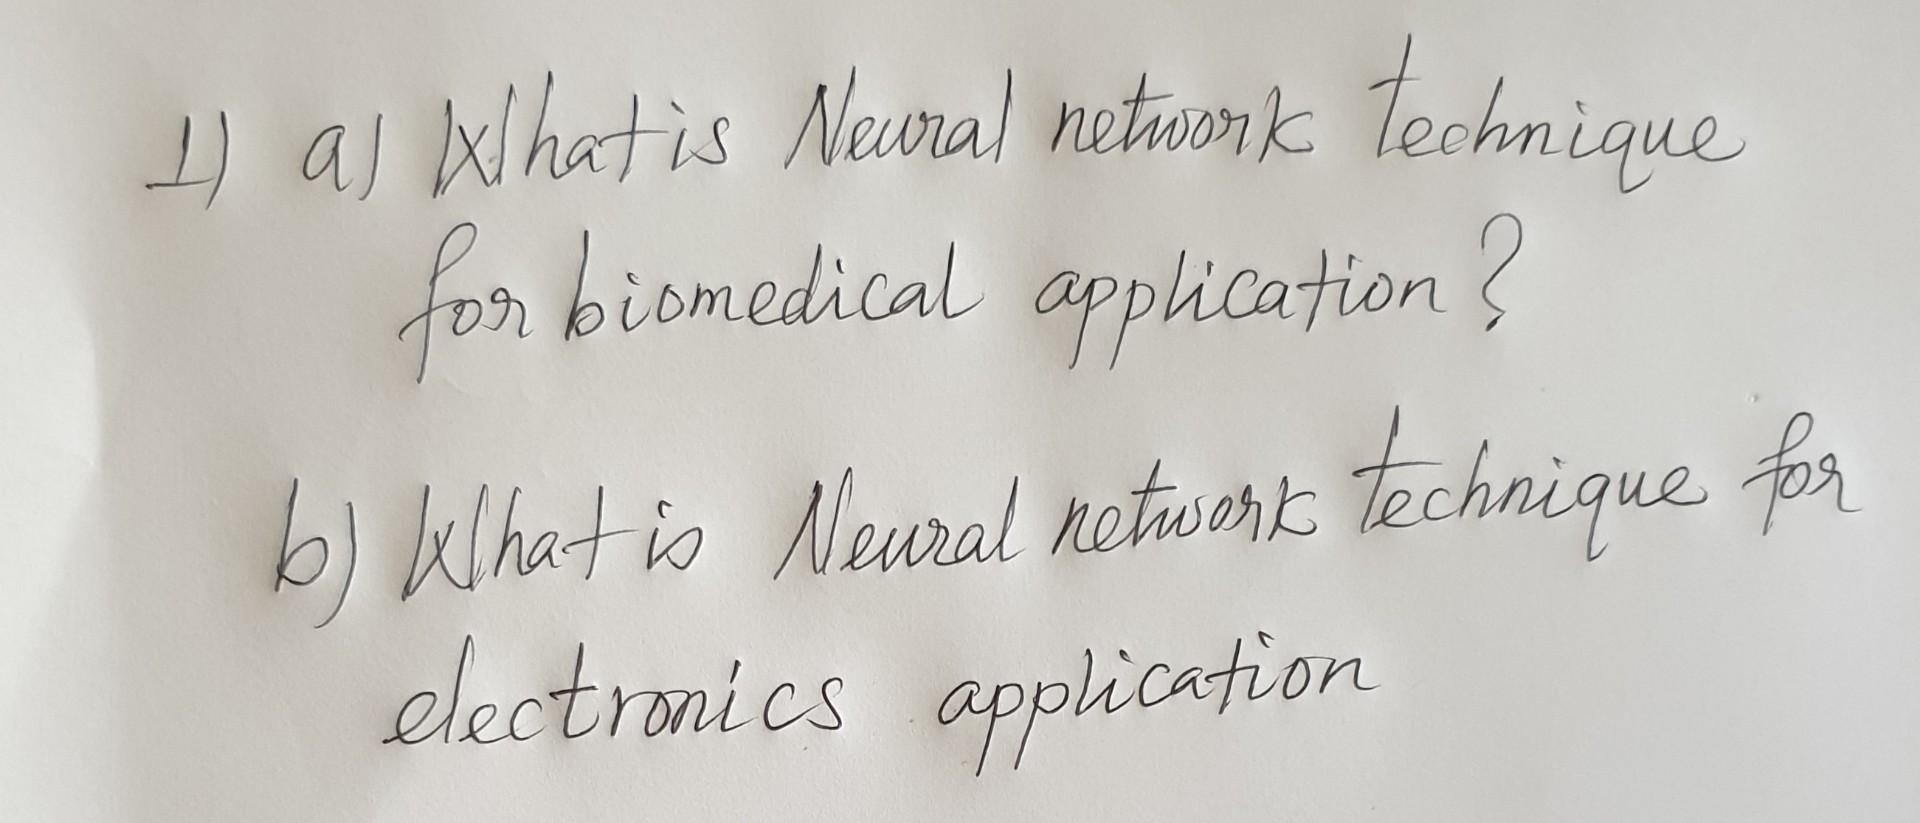 1) a) What is Neural network technique
for biomedical application?
b) What is Neural network technique for
electronics application